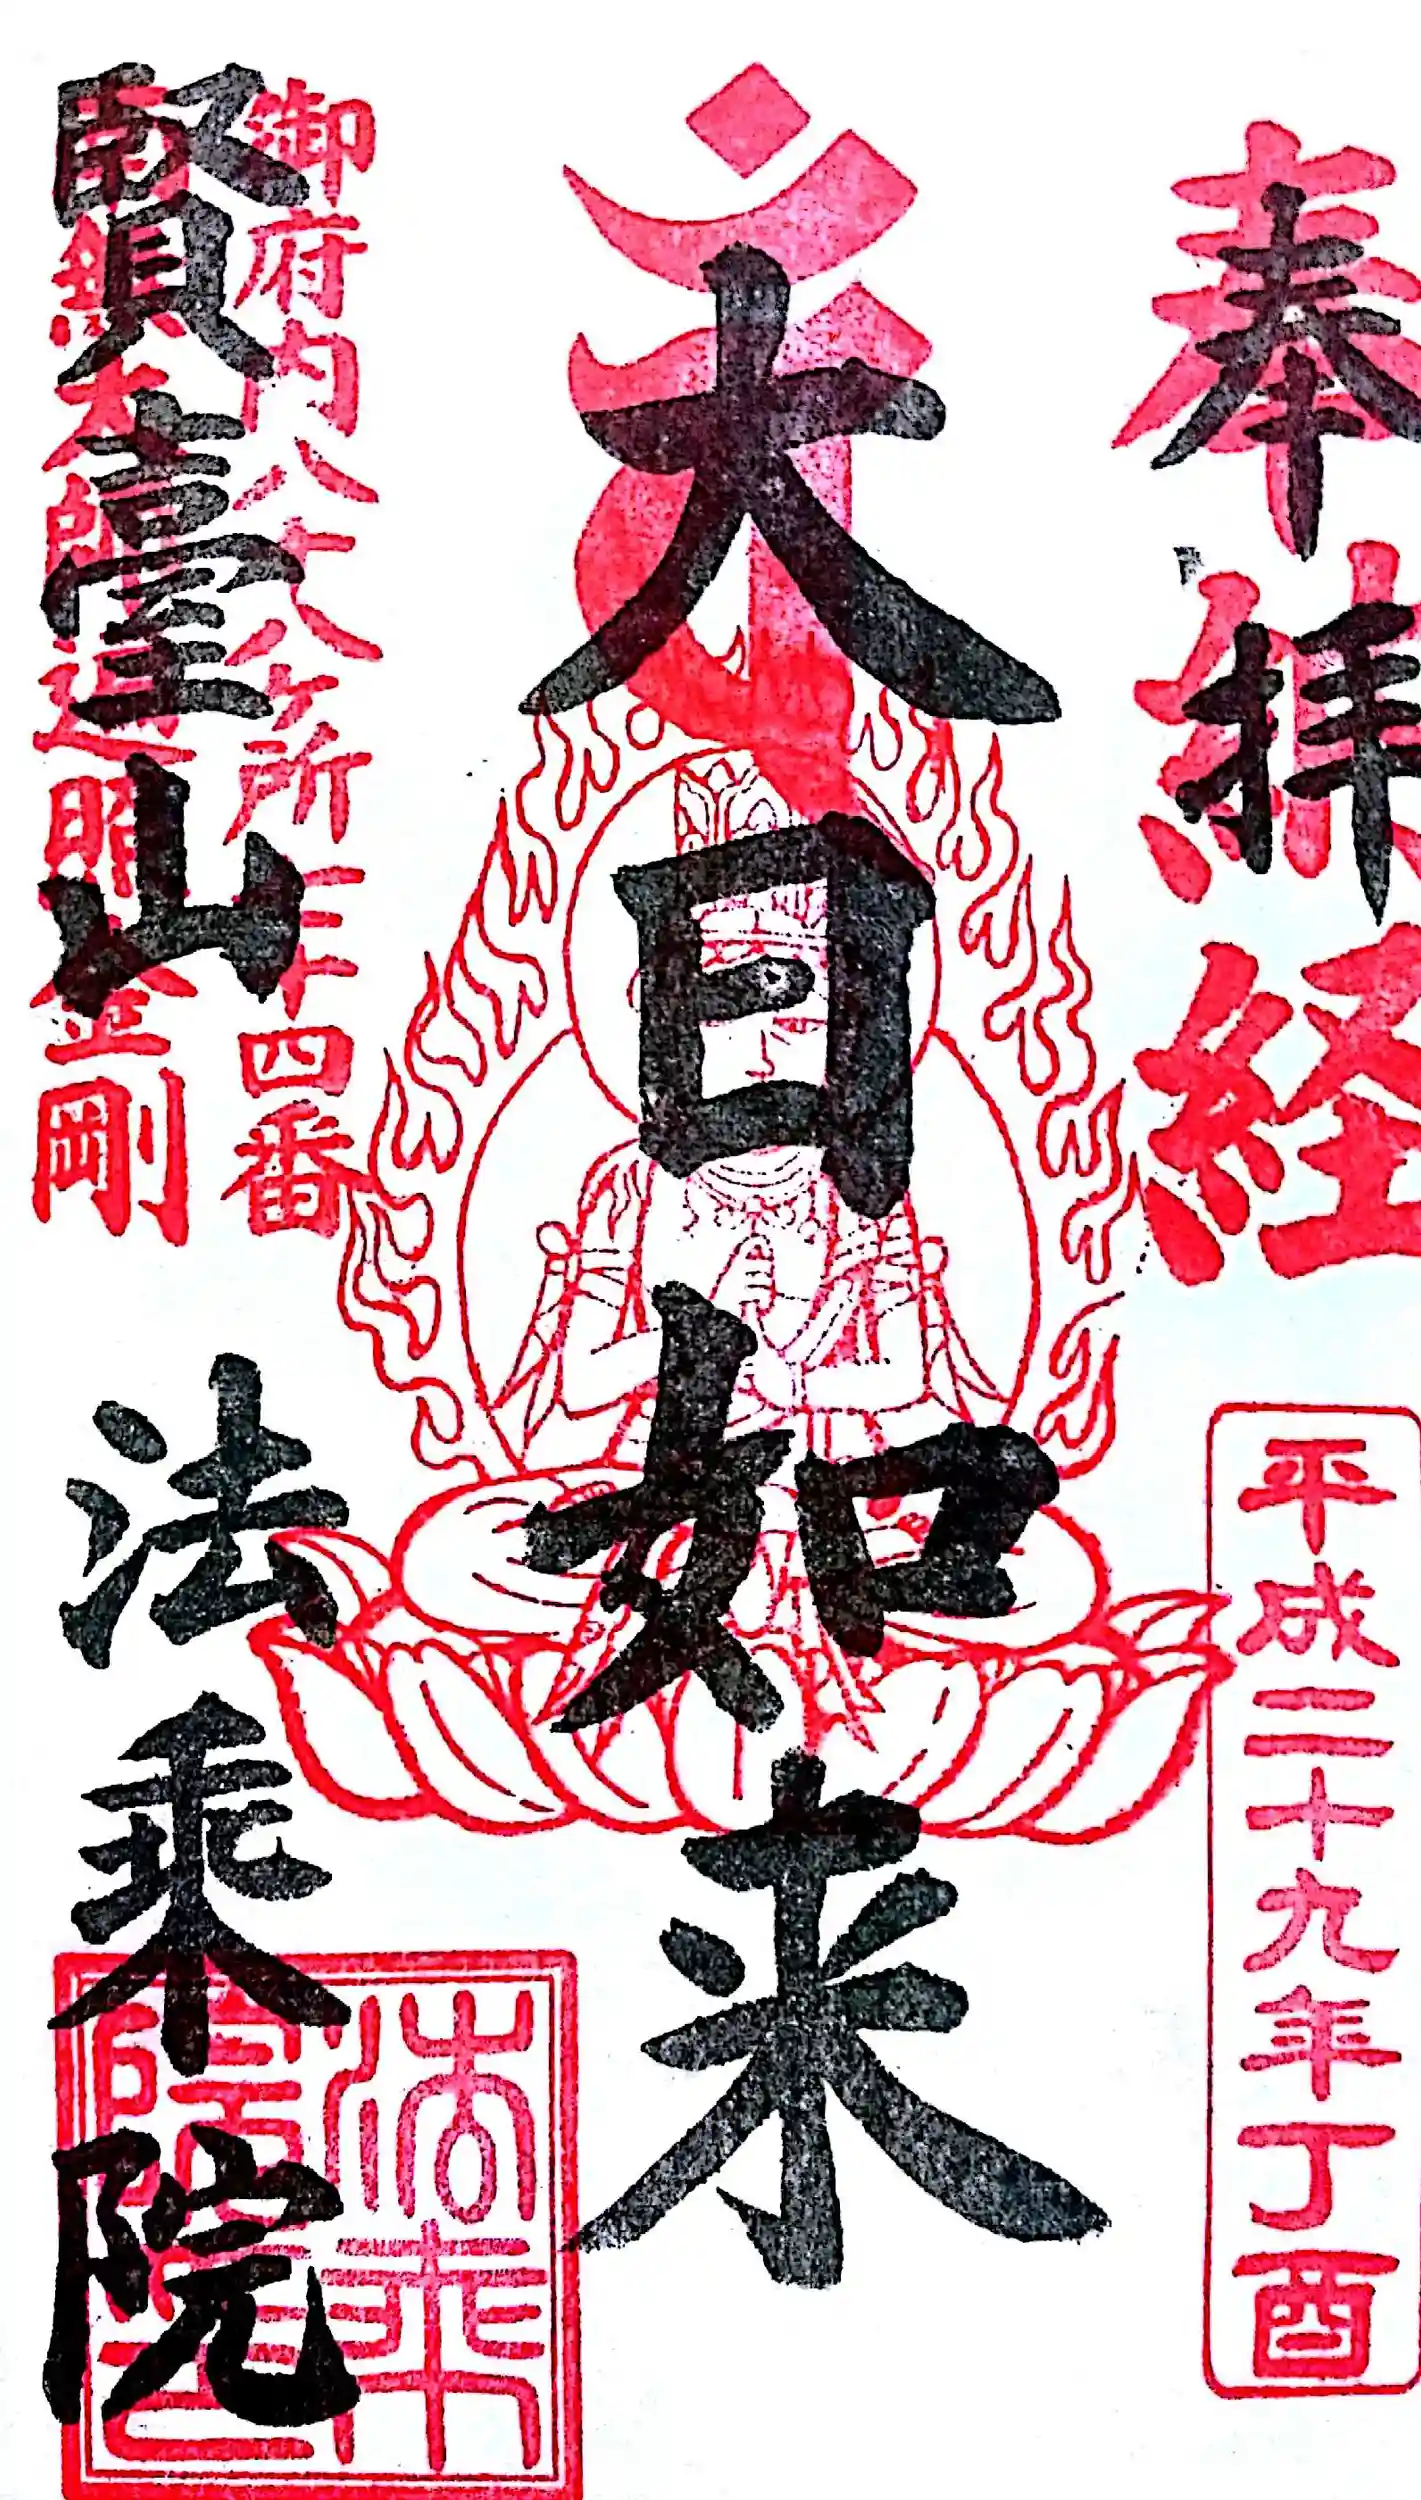 奉拝
納経
平成二十九年丁酉
大日如来
御府内八十八ヶ所七十四番
南無大師遍照金剛
賢臺山
法乘院